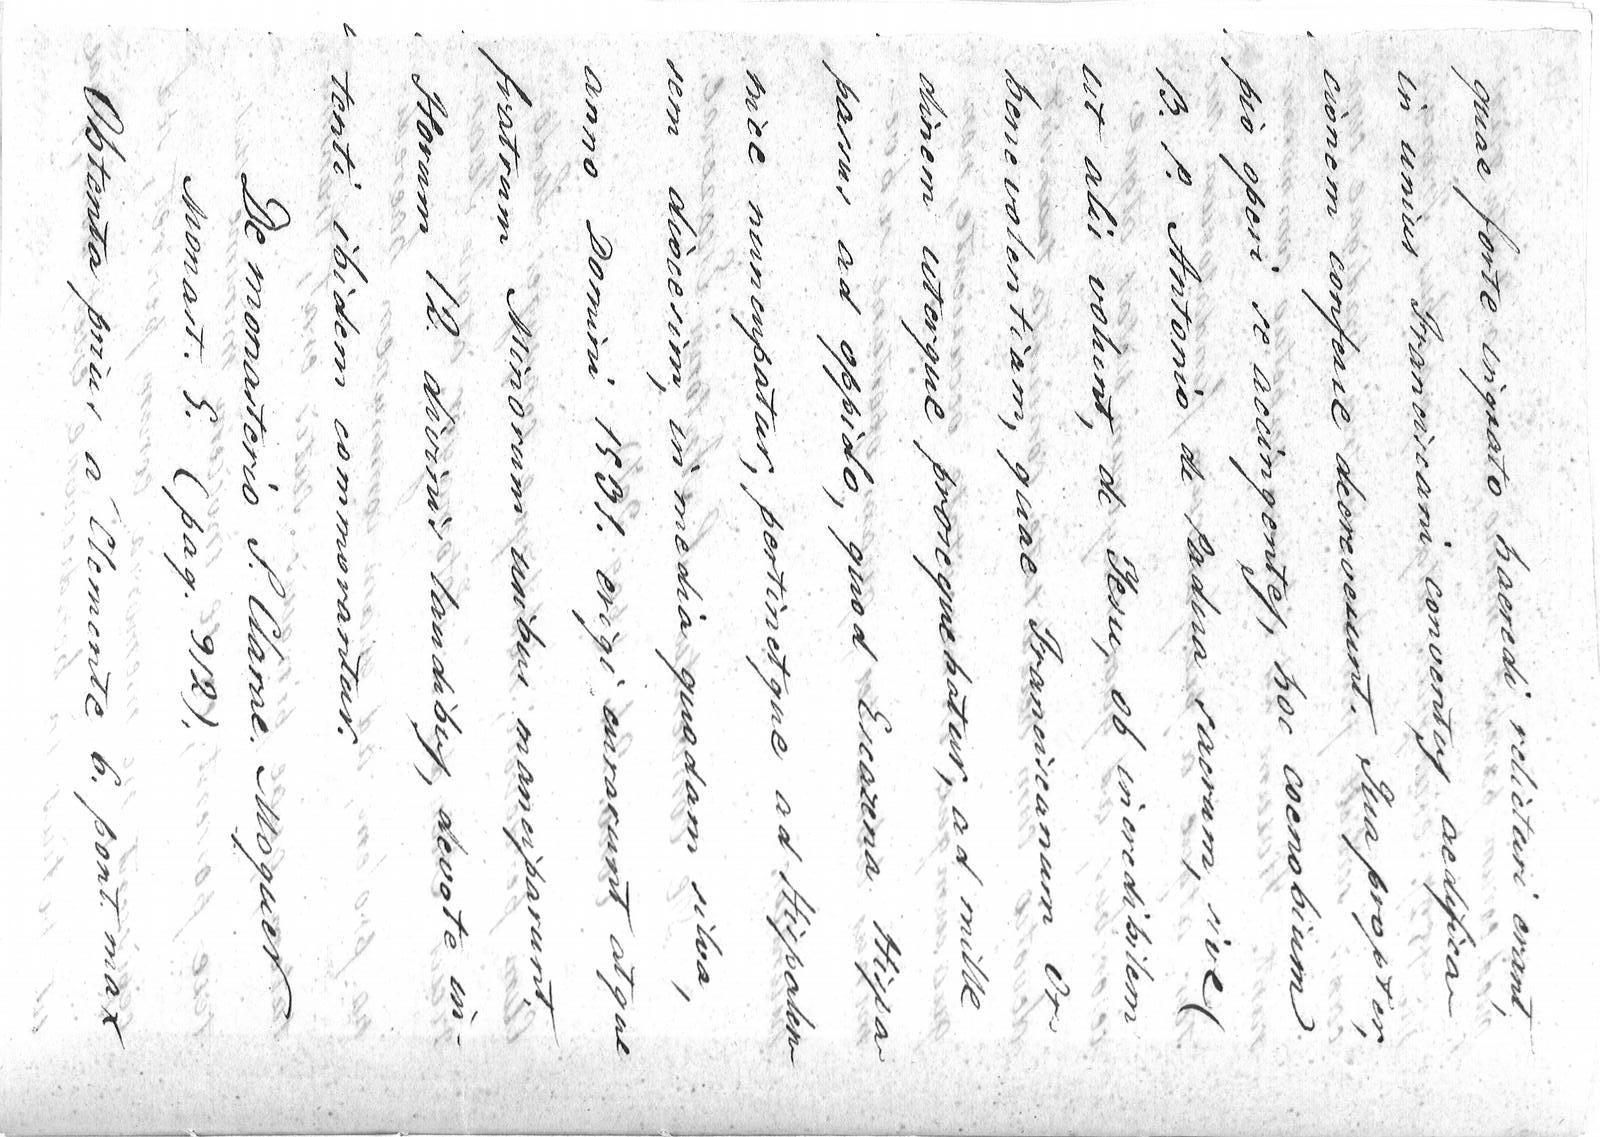 quae forte ingrato haeredi relicturi erant,
in unius Franciscani conventus aedifica-
cionem conferre decreverunt. Qua propter,
pio operi se accingentes, hoc coenobium
B. P. Antonio de Padua sacrum, sive (
ut alii volunt, de Jesu, ob incredibilem
benevolentiam, quae Franciscanum Or-
dinem uterque prosequebatur, ad mille
passus ad oppido, quod Escazena Hispa-
nice nuncupatur, pertinetque ad Hispalen-
sem diocesim, in media quadam silva,
anno Domini 1531. erigi curarunt atque
fratrum Minorum usibus manciparunt.
Horum 12. divinis laudibus, devote in-
tenti ibidem commorantur.
De monasterio S. Clarae. Moguer
Monast. 5. (pag. 912).
Obtenta prius a Clemente 6. pont. max